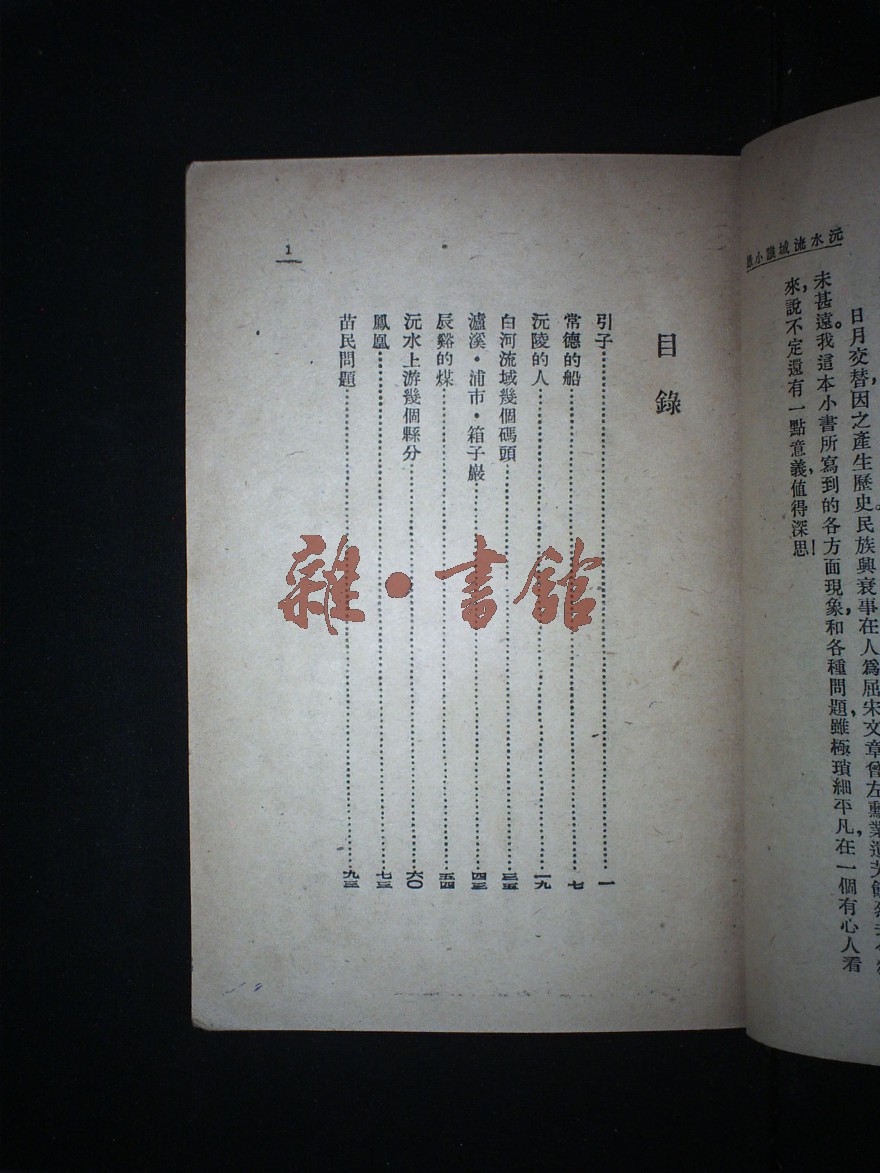 沅水流域識小錄
日月交替,因之產生歷史。民族興衰,事在人為。屈宋文章,曾左勳業,
未甚遠。我這本小書所寫到的各方面現象,和各種問題,雖極瑣細平凡,在一個有心人看
來,說不定還有一點意義,值得深思!
目錄
引子 一
常德的船 七
沅陵的人 一九
白河流域幾個碼頭 三五
瀘溪・浦市・箱子巖 四三
辰谿的煤 五四
沅水上游幾個縣分 六〇
鳳凰 七三
苗民問題 九三
1
雜・書館